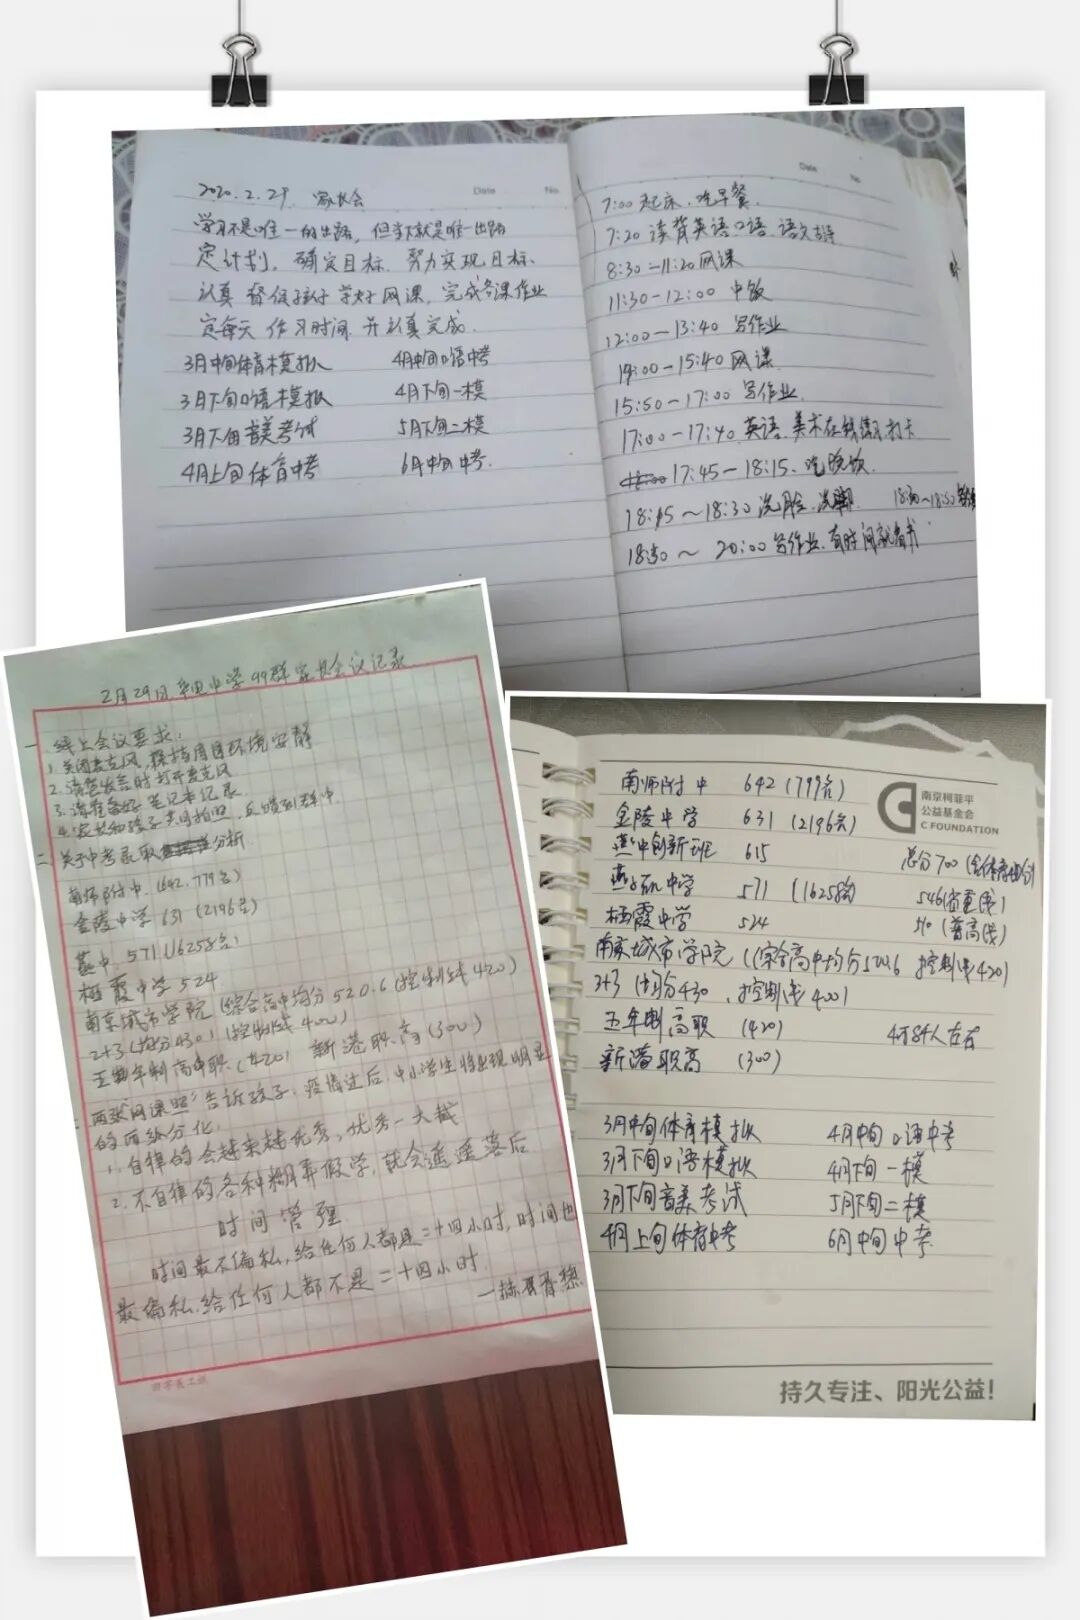 2020.2.29 家长会
Date No
学习不是唯一的出路，但当下就是唯一出路
定计划，确定目标，努力实现目标、
认真督促孩子学好网课，完成各课作业
定每天作习时间并认真完成.
3月中旬体育模拟 4月中旬口语中考
3月下旬口语模拟 4月下旬一模
3月下旬音美考试 5月下旬二模
4月上旬体育中考 6月中旬中考.
Date No
7:00 起床、吃早餐
7:20 读背英语口语、语文古诗
8:30-11:20 网课
11:30-12:00 中饭
12:00-13:40 写作业
14:00-15:40 网课
15:50-17:00 写作业
17:00-17:40 英语、美术在线练习打卡
17:45-18:15、吃晚饭.
18:15~18:30 洗脸、洗脚
18:30~20:00 写作业、有时间就看书
2月29日 中学99群家长会议记录
一、线上会议要求:
1.关闭麦克风,保持周围环境安静
2.请您发言时打开麦克风
3.请准备好笔记本记录
4.家长和孩子共同拍照,反馈到群中.
二、关于中考录取分析.
南师附中.(642.779名)
金陵中学 631 (2196名)
燕中 571 (16258名)
栖霞中学 524
南京城市学院 (综合高中均分520.6 (控制线420)
2+3 (均分430) (控制线400)
五年制高职.(420) 新港职高(300)
两张"网课照"告诉孩子:疫情过后,中小学生将出现明显
的两级分化:
1.自律的会越来越优秀,优秀一大截
2.不自律的各种糊弄假学,就会遥遥落后
时间管理
时间最不偏私,给任何人都是二十四小时,时间也
最偏私,给任何人都不是二十四小时.
—赫胥黎
南师附中 642 (799名)
金陵中学 631 (2196名)
燕中创新班 615
燕子矶中学 571 (16258名)
栖霞中学 524
南京柯菲平
公益基金会
C FOUNDATION
546(省重线)
510 (普高线)
南京城市学院 ((综合高中均分520.6 控制线420)
3+3 (均分430、控制线400)
五年制高职 (420) 4万8千人左右
新港职高 (300)
3月中旬体育模拟 4月中旬口语中考
3月下旬口语模拟 4月下旬一模
3月下旬音美考试 5月下旬二模
4月上旬体育中考 6月中旬中考
持久专注、阳光公益!